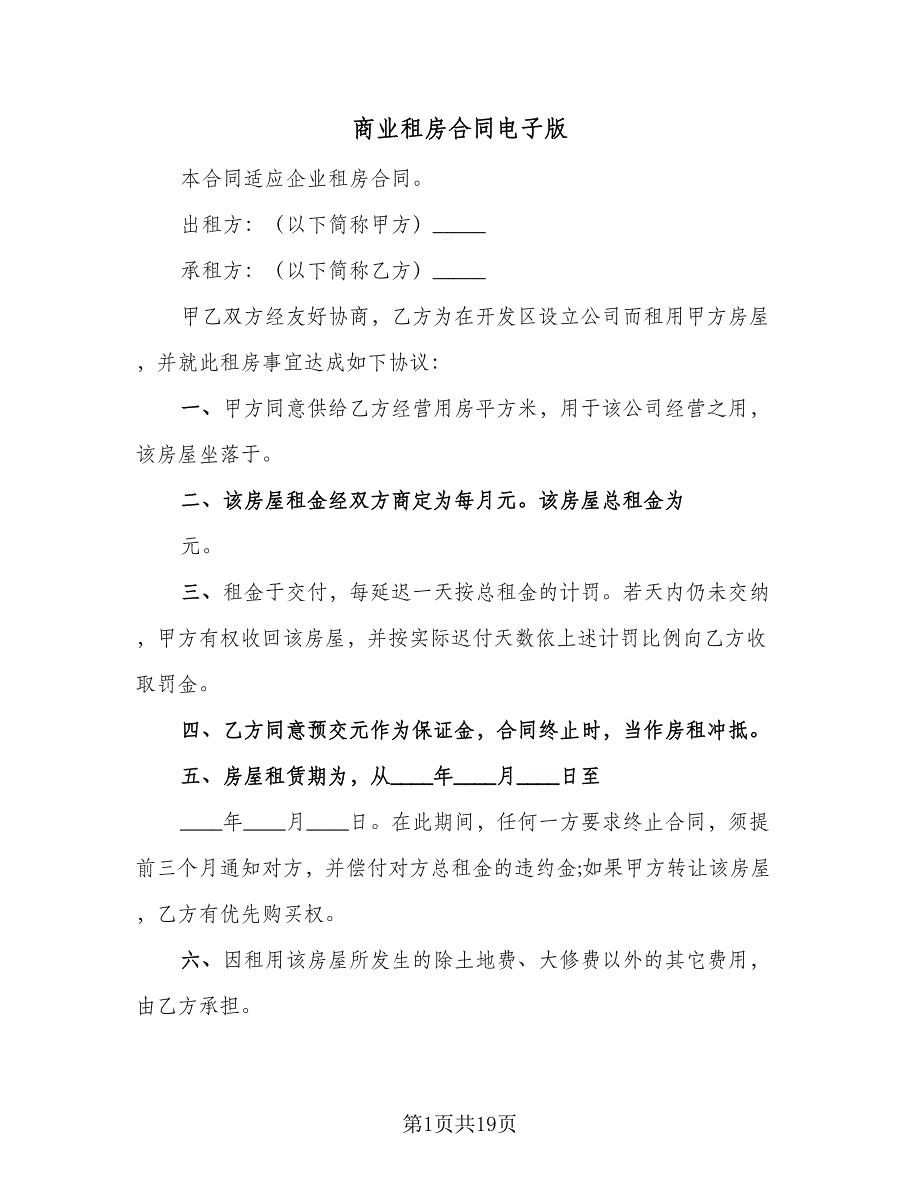 商业租房合同电子版
本合同适应企业租房合同。
出租方：（以下简称甲方）_____
承租方：（以下简称乙方）_____
甲乙双方经友好协商，乙方为在开发区设立公司而租用甲方房屋
，并就此租房事宜达成如下协议：
一、甲方同意供给乙方经营用房平方米，用于该公司经营之用，
该房屋坐落于。
二、该房屋租金经双方商定为每月元。该房屋总租金为
元。
三、租金于交付，每延迟一天按总租金的计罚。若天内仍未交纳
，甲方有权收回该房屋，并按实际迟付天数依上述计罚比例向乙方收
取罚金。
四、乙方同意预交元作为保证金，合同终止时，当作房租冲抵。
五、房屋租赁期为，从____年____月____日至
____年____月____日。在此期间，任何一方要求终止合同，须提
前三个月通知对方，并偿付对方总租金的违约金;如果甲方转让该房屋
，乙方有优先购买权。
六、因租用该房屋所发生的除土地费、大修费以外的其它费用，
由乙方承担。
第1页共19页